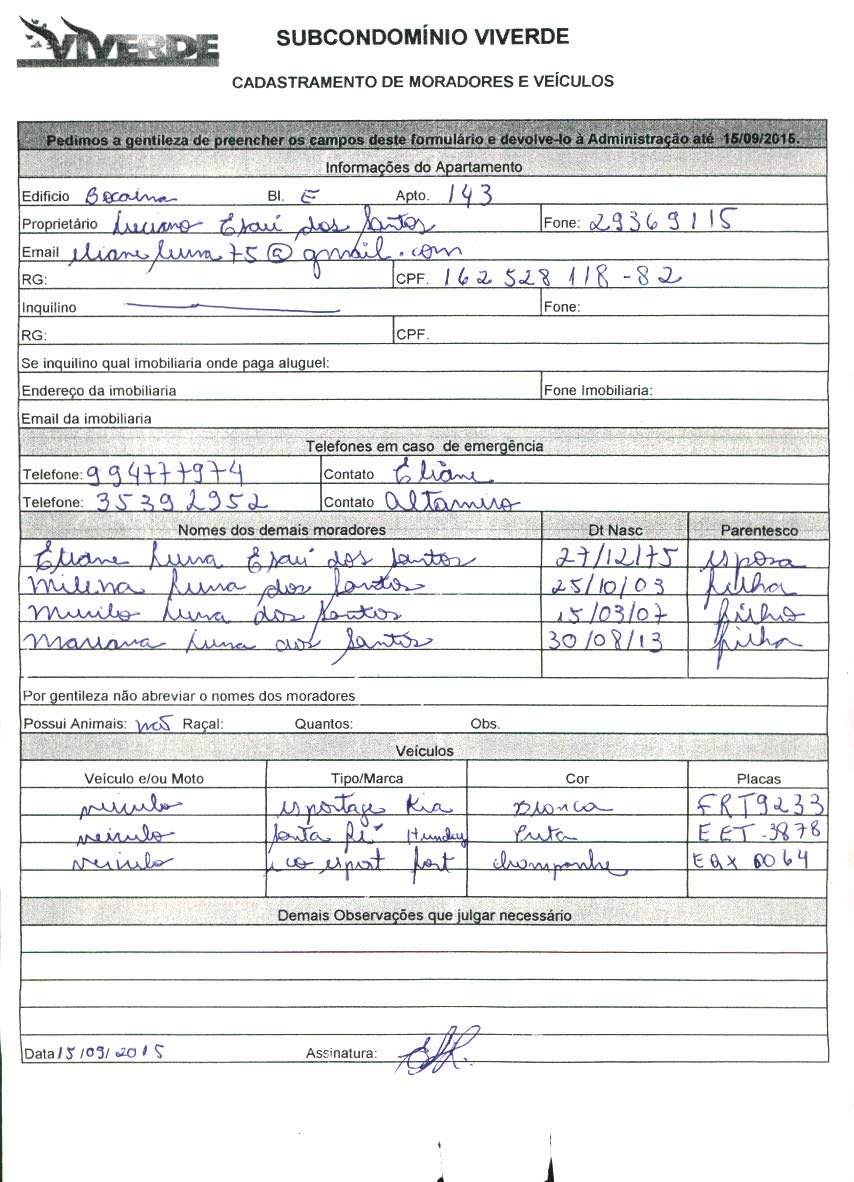 VIVERDE
SUBCONDOMÍNIO VIVERDE
CADASTRAMENTO DE MORADORES E VEÍCULOS
Pedimos a gentileza de preencher os campos deste formulário e devolve-lo à Administração até 15/09/2015.
Informações do Apartamento
Edificio Bocaina Bl. E Apto. 143
Proprietário Luciano Esaú dos Santos Fone: 29369115
Email elianeluna75@gmail.com
RG: CPF. 162 528 118-82
Inquilino Fone:
RG: CPF.
Se inquilino qual imobiliaria onde paga aluguel:
Endereço da imobiliaria Fone Imobiliaria:
Email da imobiliaria
Telefones em caso de emergência
Telefone: 994777974 Contato Eliane
Telefone: 35392952 Contato Altamiro
Nomes dos demais moradores Dt Nasc Parentesco
Eliane Luna Esaú dos Santos 27/12/75 esposa
Milena Luna dos Santos 25/10/03 filha
Murilo Luna dos Santos 15/03/07 filho
Mariana Luna dos Santos 30/08/13 filha
Por gentileza não abreviar o nomes dos moradores
Possui Animais: não Raçal: Quantos: Obs.
Veículos
Veículo e/ou Moto Tipo/Marca Cor Placas
veiculo esportage Kia Branca FRT9233
veiculo Santa Fé Hunday Preta EET-3878
veiculo eco esport fort champanhe EQX 0064
Demais Observações que julgar necessário
Data 15/09/2015 Assinatura: